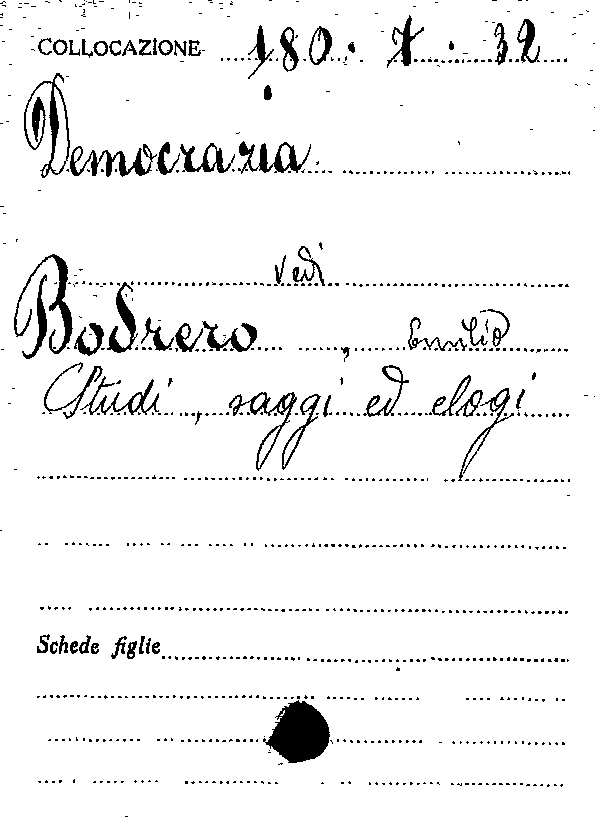 COLLOCAZIONE 180. 7. 32
Democrazia
vedi
Bodrero, Emilio
Studi, saggi ed elogi
Schede figlie